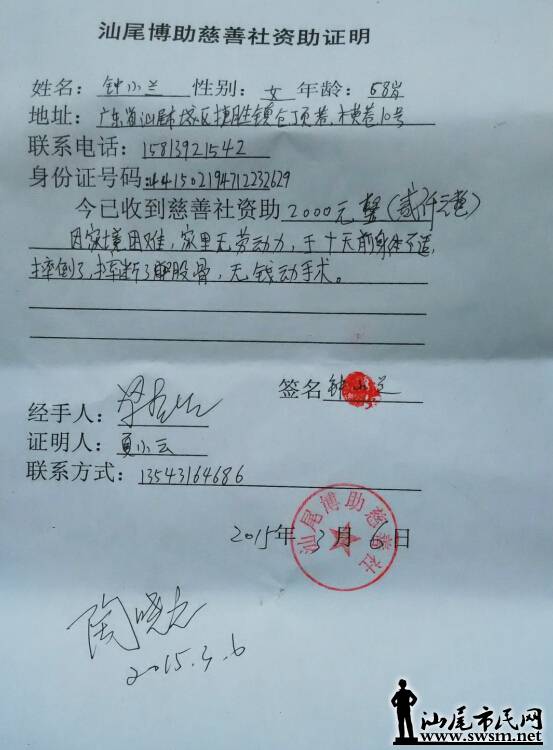 汕尾博助慈善社资助证明
姓名：钟小兰 性别：女 年龄：68岁
地址：广东省汕尾市城区捷胜镇 横巷10号
联系电话：15813921542
身份证号码：441502194712232629
今已收到慈善社资助2000元整（贰仟元正）
因家境困难，家里无劳动力，于十天前身体不适，
摔倒了，摔断了 股骨，无钱动手术。
签名 钟小兰
经手人：
证明人：夏小云
联系方式：13543164686
汕尾博助慈善社
2015年3月6日
陶晓
2015.3.6
汕尾市民网
www.swsm.net